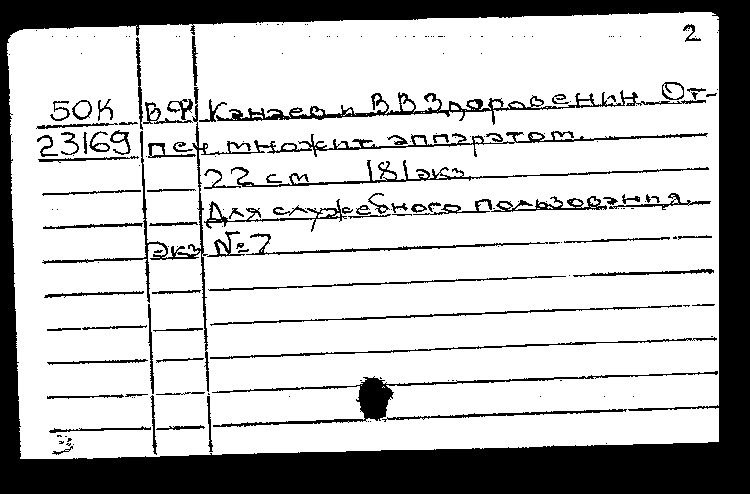 2
50К В.Ф Канаев и В.В Здоровенин. От-
23169 печ множит. аппаратом.
22 см 181экз.
Для служебного пользования.
Экз №7
3